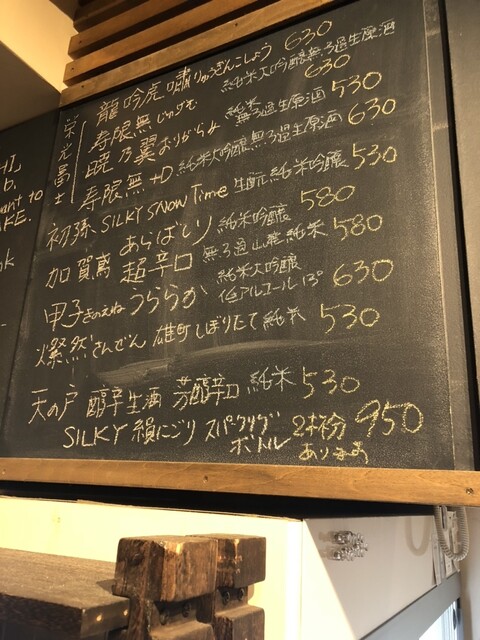 栄光冨士
龍吟虎嘯 りゅうぎんこしょう 630
純米大吟醸無ろ過生原酒
寿限無 じゅげむ 630
純米
無ろ過生原酒 530
暁乃翼 おりがらみ
純米大吟醸無ろ過生原酒 630
寿限無 +D
初孫 SILKY SNOW Time 生酛純米吟醸 530
加賀鳶 あらばしり 純米吟醸 580
超辛口 無ろ過山廃純米 580
甲子 きのえね うららか 純米大吟醸
低アルコール 13° 630
燦然 さんぜん 雄町しぼりたて 純米 530
天の戸 醇辛生酒 芳醇辛口 純米 530
SILKY 絹にごり スパークリング
ボトル 2杯分 950
あります
want to
KE.
ok